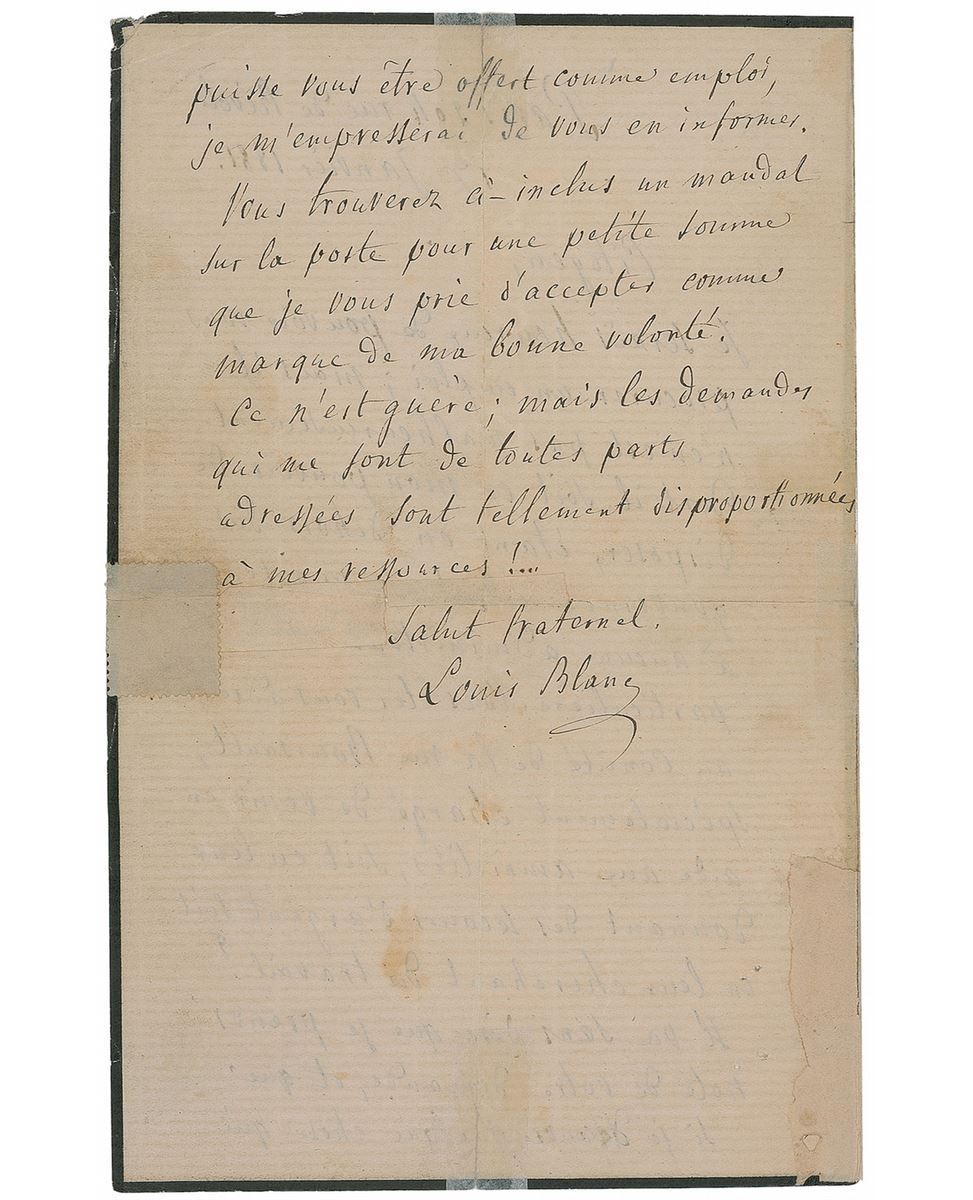 puisse vous être offert comme emploi,
je m'empresserai de vous en informer.
Vous trouverez ci-inclus un mandat
sur la poste pour une petite somme
que je vous prie d'accepter comme
marque de ma bonne volonté.
Ce n'est guère ; mais les demandes
qui me sont de toutes parts
adressées sont tellement disproportionnées
à mes ressources !...
Salut fraternel.
Louis Blanc